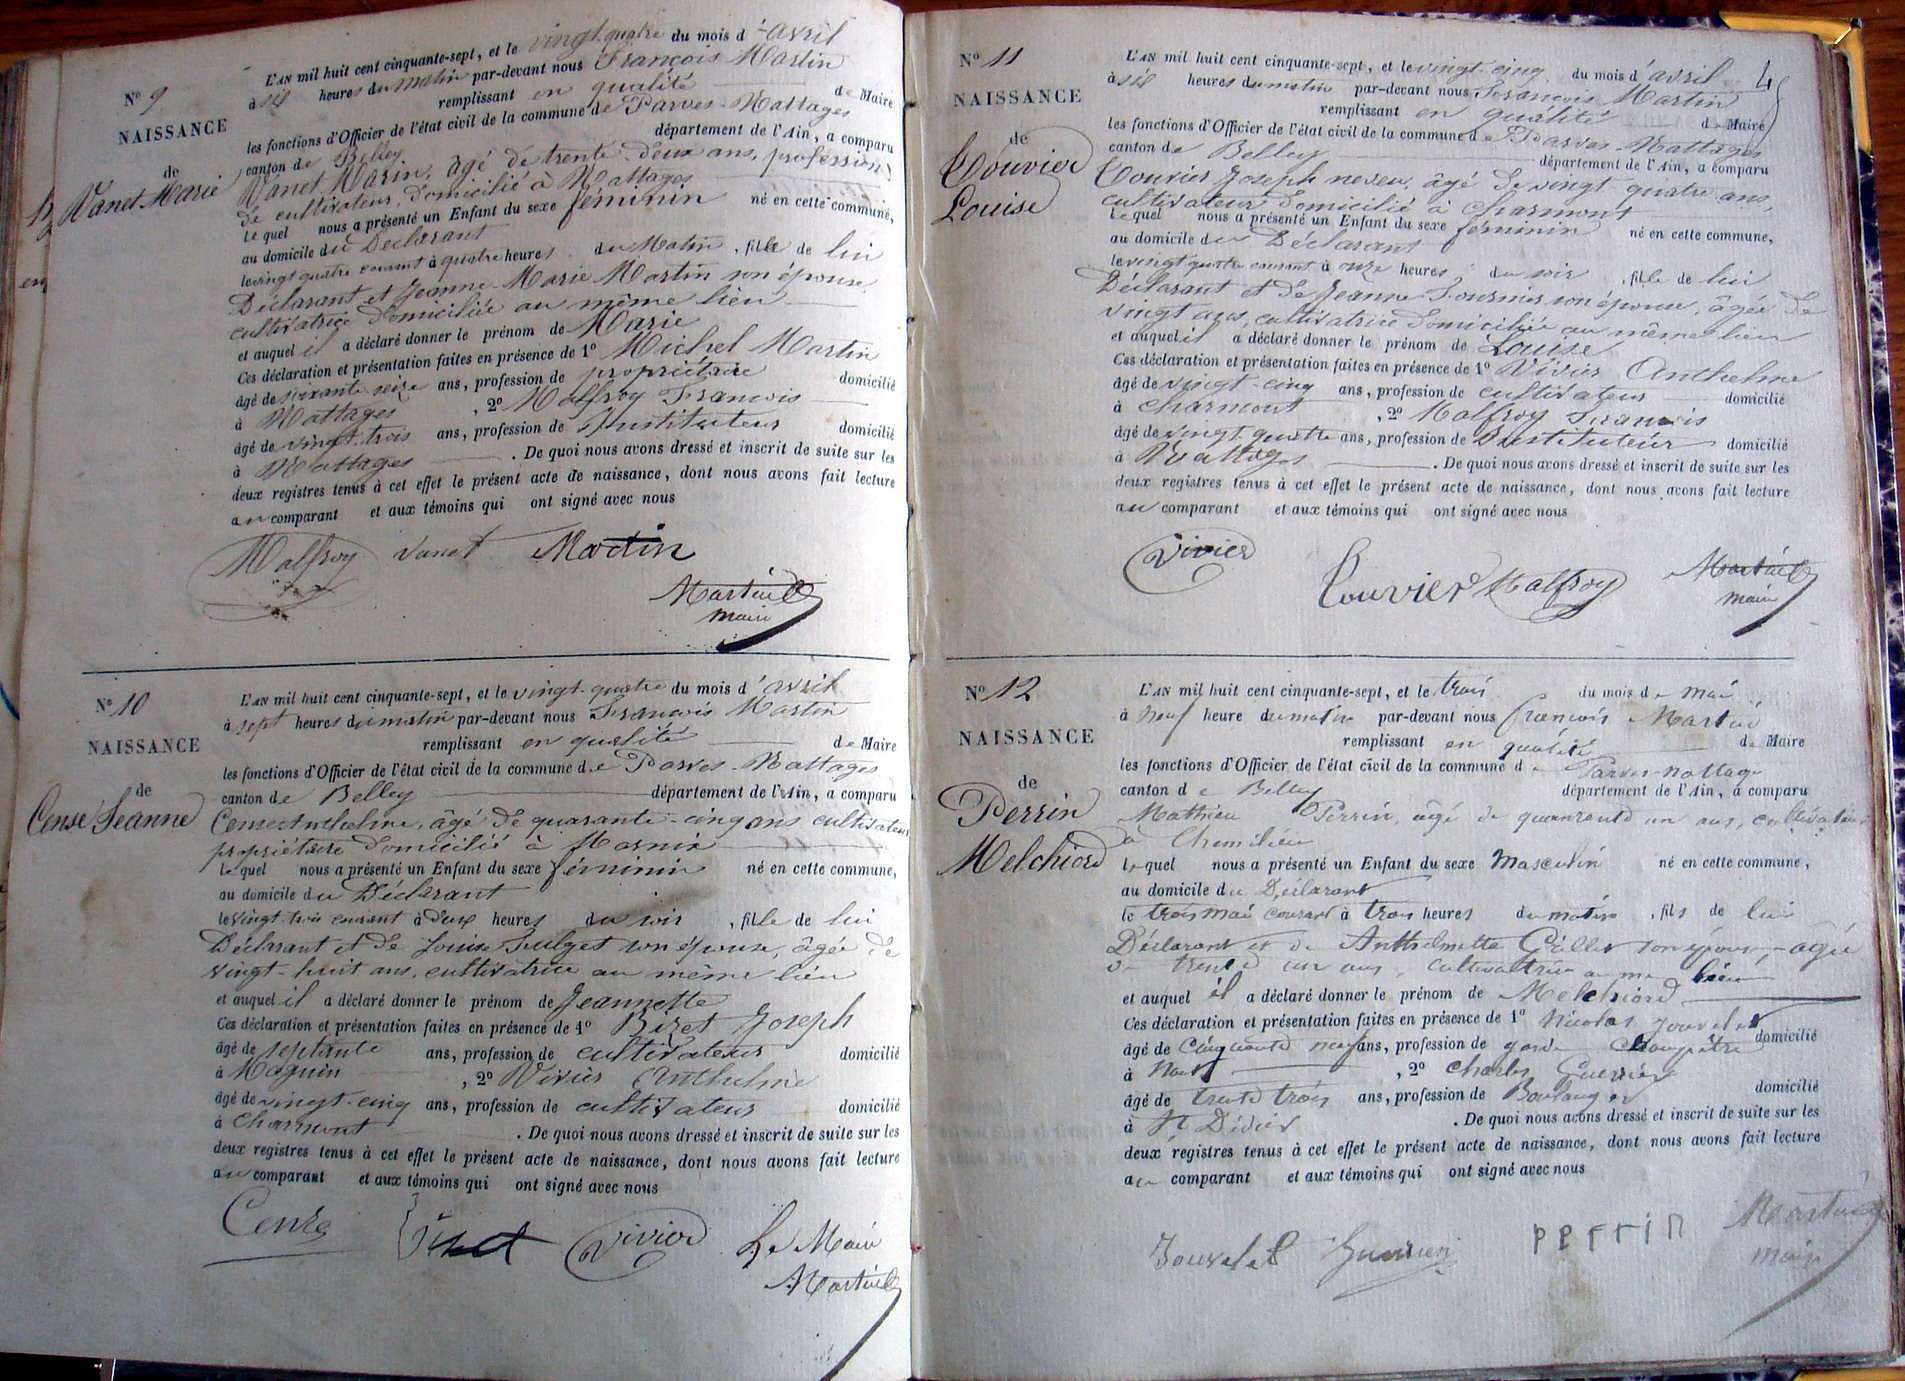 N° 9
NAISSANCE
de
Vanet Marie
L'AN mil huit cent cinquante-sept, et le vingt-quatre du mois d'avril
à six heures du matin par-devant nous François Martin
remplissant en qualité de Maire
les fonctions d'Officier de l'état civil de la commune de Parves-Nattages
canton de Belley département de l'Ain, a comparu
Vanet Marin, âgé de trente-deux ans, profession
de cultivateur, domicilié à Nattages
Lequel nous a présenté un Enfant du sexe féminin né en cette commune,
au domicile du Déclarant
le vingt quatre courant à quatre heures du Matin, fille de lui
Déclarant et Jeanne-Marie Martin son épouse,
cultivatrice domiciliée au même lieu
et auquel il a déclaré donner le prénom de Marie
Ces déclaration et présentation faites en présence de 1° Michel Martin
âgé de soixante-seize ans, profession de propriétaire domicilié
à Nattages, 2° Malfroy François
âgé de vingt-trois ans, profession de Instituteur domicilié
à Nattages. De quoi nous avons dressé et inscrit de suite sur les
deux registres tenus à cet effet le présent acte de naissance, dont nous avons fait lecture
au comparant et aux témoins qui ont signé avec nous
Malfroy Vanet Martin
Martin
maire
N° 10
NAISSANCE
de
Cense Jeanne
L'AN mil huit cent cinquante-sept, et le vingt-quatre du mois d'avril
à sept heures du matin par-devant nous François Martin
remplissant en qualité de Maire
les fonctions d'Officier de l'état civil de la commune de Parves-Nattages
canton de Belley département de l'Ain, a comparu
Cense Anthelme, âgé de quarante-cinq ans cultivateur
propriétaire domicilié à
Lequel nous a présenté un Enfant du sexe féminin né en cette commune,
au domicile du Déclarant
le vingt-trois courant à deux heures du soir, fille de lui
Déclarant et de Louise son épouse, âgée de
vingt-huit ans, cultivatrice au même lieu
et auquel il a déclaré donner le prénom de Jeannette
Ces déclaration et présentation faites en présence de 1° Bizet Joseph
âgé de septante ans, profession de cultivateur domicilié
à, 2° Vivier Anthelme
âgé de vingt-cinq ans, profession de cultivateur domicilié
à Charmont. De quoi nous avons dressé et inscrit de suite sur les
deux registres tenus à cet effet le présent acte de naissance, dont nous avons fait lecture
au comparant et aux témoins qui ont signé avec nous
Vivier Le Maire
Martin
4
N° 11
NAISSANCE
de
Couvier
Louise
L'AN mil huit cent cinquante-sept, et le vingt-cinq du mois d'avril
à six heures du matin par-devant nous François Martin
remplissant en qualité de Maire
les fonctions d'Officier de l'état civil de la commune de Parves-Nattages
canton de Belley département de l'Ain, a comparu
Couvier Joseph neveu, âgé de vingt-quatre ans,
cultivateur domicilié à Charmont
Lequel nous a présenté un Enfant du sexe féminin né en cette commune,
au domicile du Déclarant
le vingt quatre courant à onze heures du soir, fille de lui
Déclarant et de Jeanne Fournier son épouse, âgée de
vingt ans, cultivatrice domiciliée au même lieu
et auquel il a déclaré donner le prénom de Louise
Ces déclaration et présentation faites en présence de 1° Vivier Anthelme
âgé de vingt-cinq ans, profession de cultivateur domicilié
à Charmont, 2° Malfroy François
âgé de vingt-quatre ans, profession de Instituteur domicilié
à Nattages. De quoi nous avons dressé et inscrit de suite sur les
deux registres tenus à cet effet le présent acte de naissance, dont nous avons fait lecture
au comparant et aux témoins qui ont signé avec nous
Vivier
Couvier Malfroy Martin
maire
N° 12
NAISSANCE
de
Perrin
Melchiord
L'AN mil huit cent cinquante-sept, et le trois du mois de mai
à neuf heure du matin par-devant nous françois Martin
remplissant en qualité de Maire
les fonctions d'Officier de l'état civil de la commune de Parves-nattage
canton de Belley département de l'Ain, a comparu
Mathieu Perrin, âgé de quarante un ans, cultivateur
à Chemilieu
lequel nous a présenté un Enfant du sexe masculin né en cette commune,
au domicile du Déclarant
le trois mai courant à trois heures du matin, fils de lui
Déclarant et de Anthelmette Grillet son épouse, agée
de trente un ans, cultivatrice au même lieu
et auquel il a déclaré donner le prénom de Melchiord
Ces déclaration et présentation faites en présence de 1° Nicolas Jouvelet
âgé de cinquante neuf ans, profession de garde Champêtre domicilié
à, 2° Charles Guerrier
âgé de trente trois ans, profession de Boulanger domicilié
à St Didier. De quoi nous avons dressé et inscrit de suite sur les
deux registres tenus à cet effet le présent acte de naissance, dont nous avons fait lecture
au comparant et aux témoins qui ont signé avec nous
Jouvelet Guerrier perrin Martin
maire